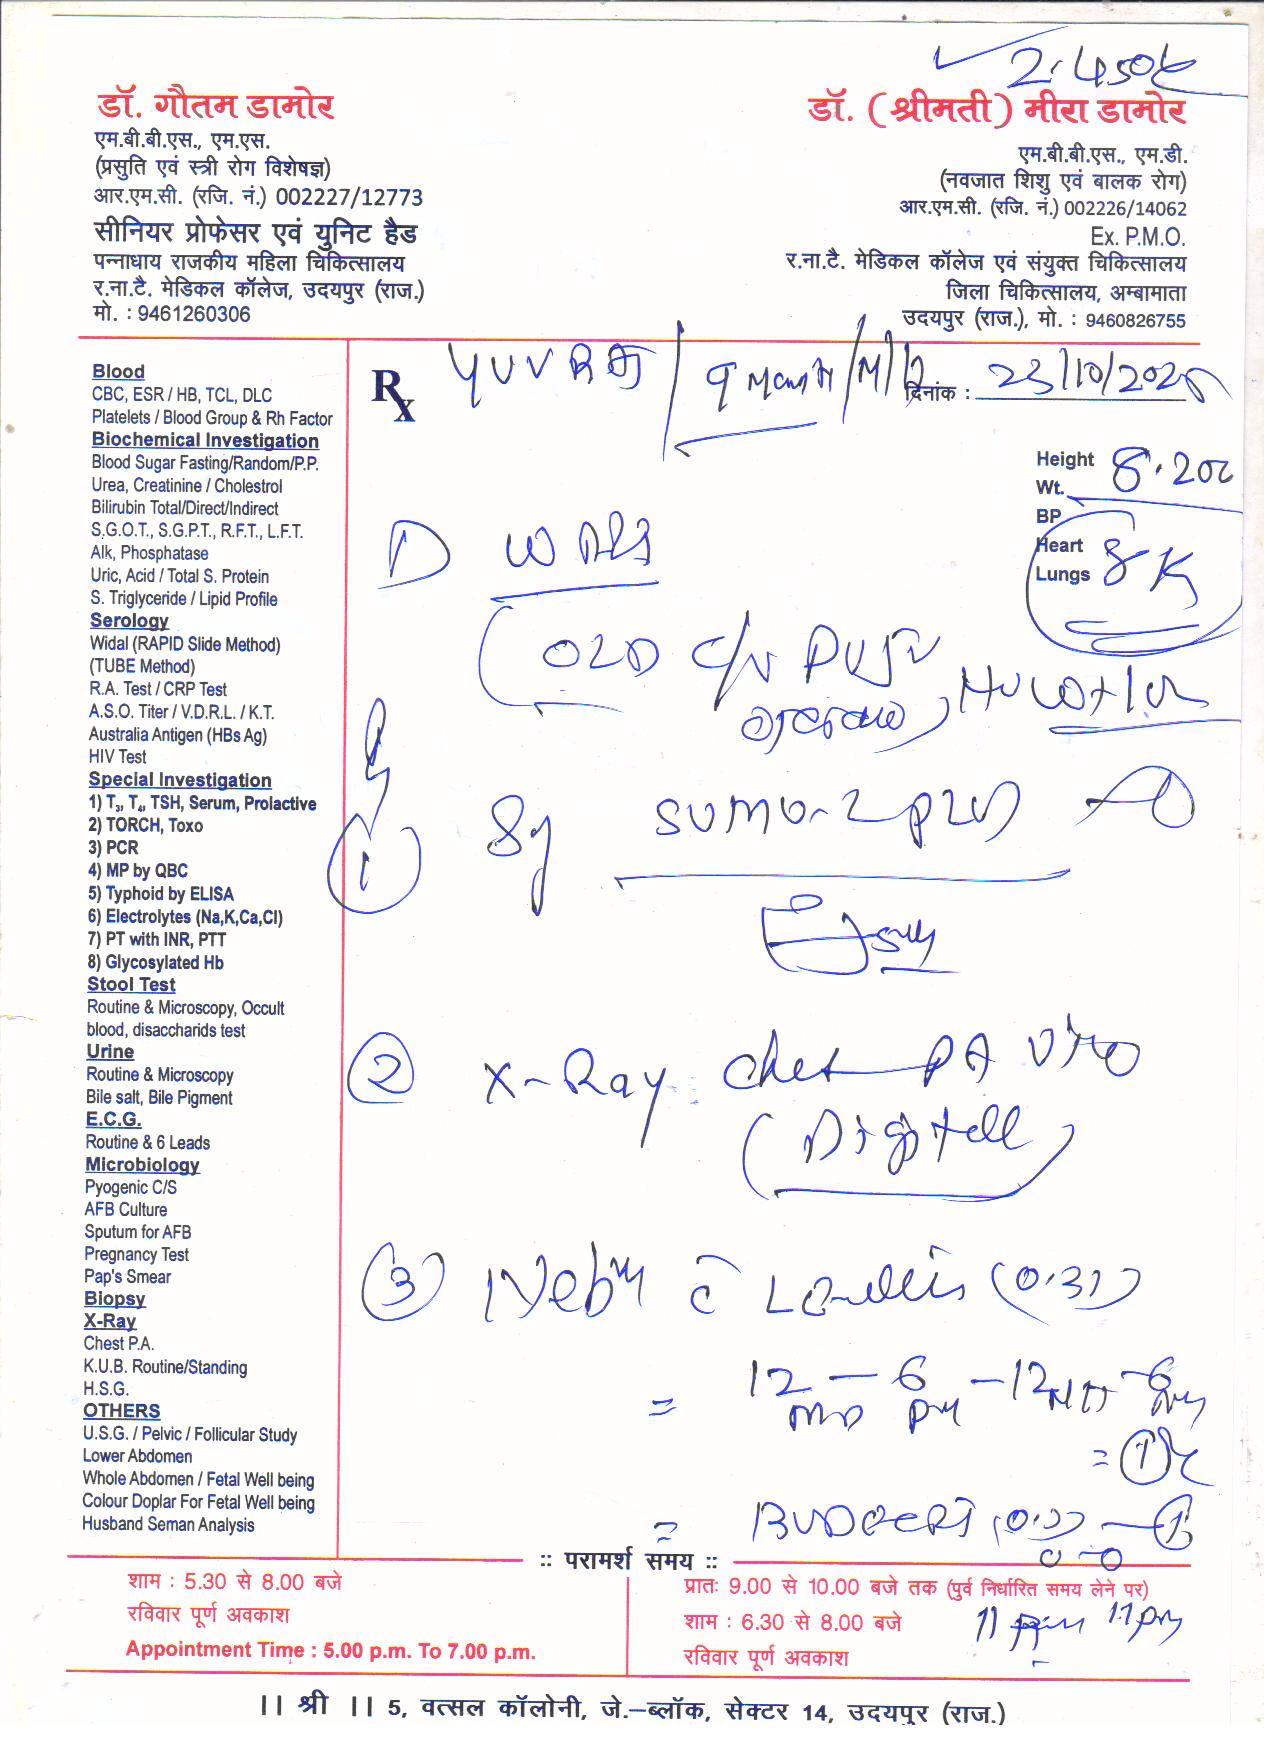 2.450k
डॉ. गौतम डामोर
एम.बी.बी.एस., एम.एस.
(प्रसुति एवं स्त्री रोग विशेषज्ञ)
आर.एम.सी. (रजि. नं.) 002227/12773
सीनियर प्रोफेसर एवं युनिट हैड
पन्नाधाय राजकीय महिला चिकित्सालय
र.ना.टै. मेडिकल कॉलेज, उदयपुर (राज.)
मो. : 9461260306
डॉ. (श्रीमती) मीरा डामोर
एम.बी.बी.एस., एम.डी.
(नवजात शिशु एवं बालक रोग)
आर.एम.सी. (रजि. नं.) 002226/14062
Ex. P.M.O.
र.ना.टै. मेडिकल कॉलेज एवं संयुक्त चिकित्सालय
जिला चिकित्सालय, अम्बामाता
उदयपुर (राज.), मो. : 9460826755
Blood
CBC, ESR / HB, TCL, DLC
Platelets / Blood Group & Rh Factor
Biochemical Investigation
Blood Sugar Fasting/Random/P.P.
Urea, Creatinine / Cholestrol
Bilirubin Total/Direct/Indirect
S.G.O.T., S.G.P.T., R.F.T., L.F.T.
Alk, Phosphatase
Uric, Acid / Total S. Protein
S. Triglyceride / Lipid Profile
Serology
Widal (RAPID Slide Method)
(TUBE Method)
R.A. Test / CRP Test
A.S.O. Titer / V.D.R.L. / K.T.
Australia Antigen (HBs Ag)
HIV Test
Special Investigation
1) T₃, T₄, TSH, Serum, Prolactive
2) TORCH, Toxo
3) PCR
4) MP by QBC
5) Typhoid by ELISA
6) Electrolytes (Na,K,Ca,Cl)
7) PT with INR, PTT
8) Glycosylated Hb
Stool Test
Routine & Microscopy, Occult
blood, disaccharids test
Urine
Routine & Microscopy
Bile salt, Bile Pigment
E.C.G.
Routine & 6 Leads
Microbiology
Pyogenic C/S
AFB Culture
Sputum for AFB
Pregnancy Test
Pap's Smear
Biopsy
X-Ray
Chest P.A.
K.U.B. Routine/Standing
H.S.G.
OTHERS
U.S.G. / Pelvic / Follicular Study
Lower Abdomen
Whole Abdomen / Fetal Well being
Colour Doplar For Fetal Well being
Husband Seman Analysis
Rx YUVRAJ / 9 Month / M / दिनांक : 23/10/2025
Height
Wt. 8.200
BP
Heart
Lungs 8 K
OLD c/o
1 Sy
2 X-Ray Chest PA View
(Digital)
3 Nebu c̄ (0.31)
= 12 — 6 — 12 — 6
MD PM
= 1
= BUDECORT
11 pm
:: परामर्श समय ::
शाम : 5.30 से 8.00 बजे
रविवार पूर्ण अवकाश
Appointment Time : 5.00 p.m. To 7.00 p.m.
प्रातः 9.00 से 10.00 बजे तक (पुर्व निर्धारित समय लेने पर)
शाम : 6.30 से 8.00 बजे
रविवार पूर्ण अवकाश
।। श्री ।। 5, वत्सल कॉलोनी, जे.–ब्लॉक, सेक्टर 14, उदयपुर (राज.)